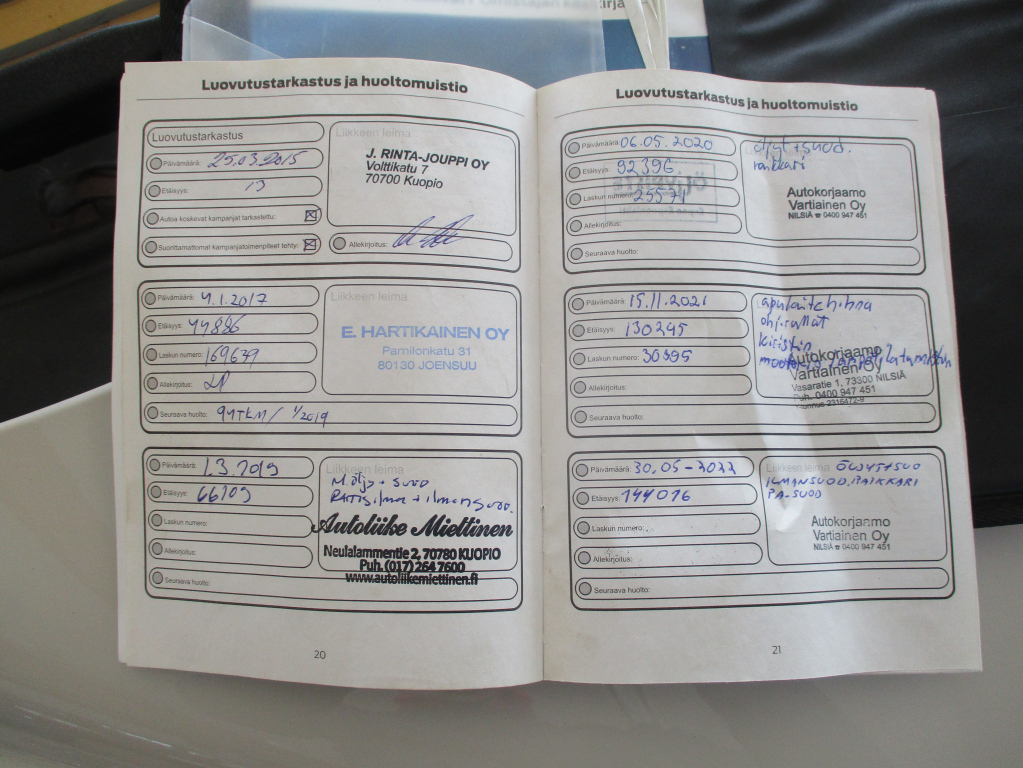 Luovutustarkastus ja huoltomuistio
Luovutustarkastus
Päivämäärä: 25.03.2015
Etäisyys: 13
Autoa koskevat kampanjat tarkastettu:
Suorittamattomat kampanjatoimenpiteet tehty:
Liikkeen leima
J. RINTA-JOUPPI OY
Volttikatu 7
70700 Kuopio
Allekirjoitus:
Päivämäärä: 4.1.2017
Etäisyys: 44886
Laskun numero: 169679
Allekirjoitus:
Seuraava huolto: 94TKM/ 1/2019
Liikkeen leima
E. HARTIKAINEN OY
Pamilonkatu 31
80130 JOENSUU
Päivämäärä: 1.3.2019
Etäisyys: 66109
Laskun numero:
Allekirjoitus:
Seuraava huolto:
Liikkeen leima
M.öljy + suod
Raitisilma + ilmansuod.
Autoliike Miettinen
Neulalammentie 2, 70780 KUOPIO
Puh. (017) 264 7600
www.autoliikemiettinen.fi
20
Luovutustarkastus ja huoltomuistio
Päivämäärä: 06.05.2020
Etäisyys: 92396
Laskun numero: 25571
Allekirjoitus:
Seuraava huolto:
öljyt+suod.
raikkari
Autokorjaamo
Vartiainen Oy
NILSIÄ ☎ 0400 947 451
Päivämäärä: 15.11.2021
Etäisyys: 130245
Laskun numero: 30395
Allekirjoitus:
Seuraava huolto:
apulaitehihna
ohj.rullat
kiristin
Autokorjaamo
Vartiainen Oy
Vasaratie 1, 73300 NILSIÄ
Puh. 0400 947 451
Päivämäärä: 30.05-2022
Etäisyys: 144016
Laskun numero:
Allekirjoitus:
Seuraava huolto:
Liikkeen leima
ÖLJYT+SUO
ILMANSUOD, RAIKKARI
PA-SUOD
Autokorjaamo
Vartiainen Oy
NILSIÄ ☎ 0400 947 451
21